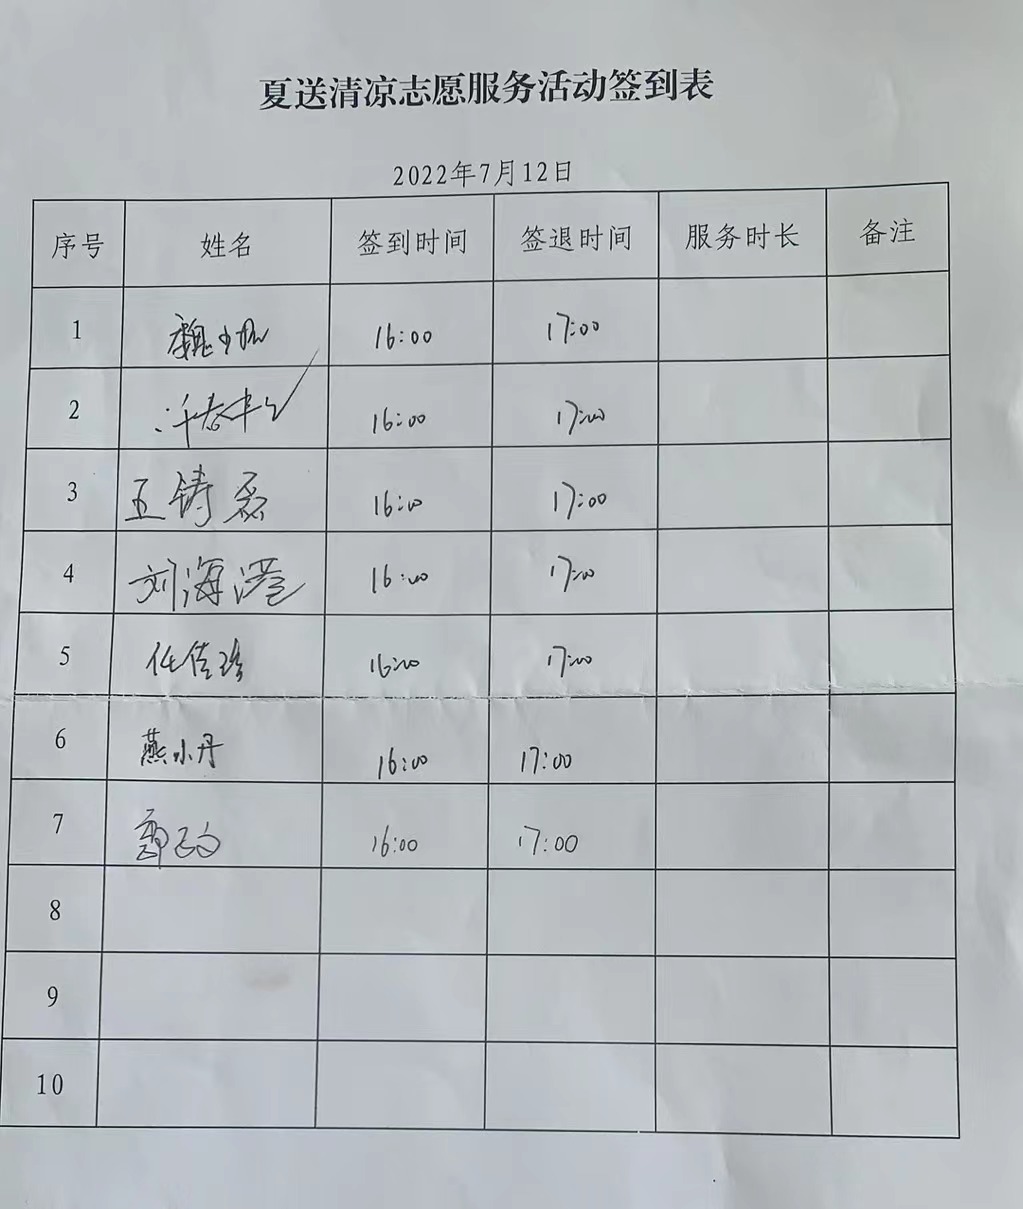 夏送清凉志愿服务活动签到表
2022年7月12日
序号 姓名 签到时间 签退时间 服务时长 备注
1 魏 16:00 17:00
2 16:00 17:00
3 王铸磊 16:00 17:00
4 刘海滢 16:00 17:00
5 任佳珍 16:00 17:00
6 燕小丹 16:00 17:00
7 16:00 17:00
8
9
10